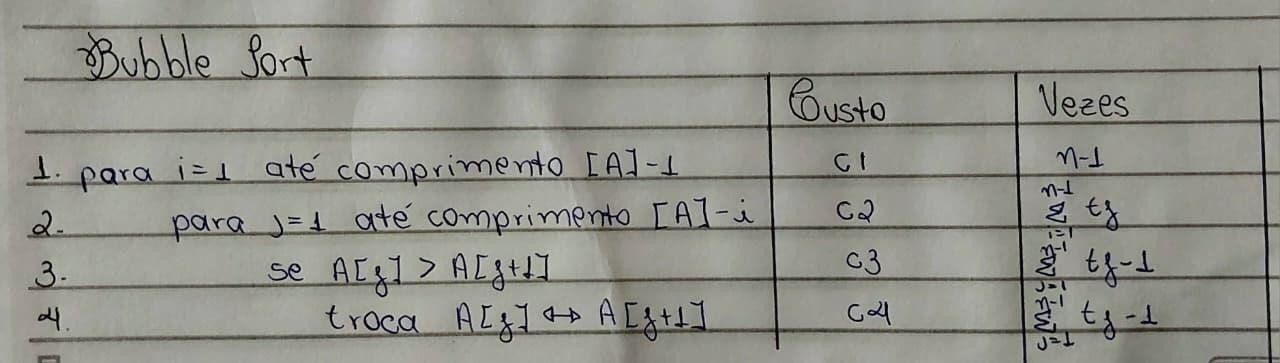 Bubble Sort
Custo Vezes
1. para i=1 até comprimento [A]-1 c1 n-1
2. para j=1 até comprimento [A]-i c2 n-1 Σ i=1 tj
3. se A[j] > A[j+1] c3 Σ tj-1
4. troca A[j] ↔ A[j+1] c4 Σ j=1 tj-1